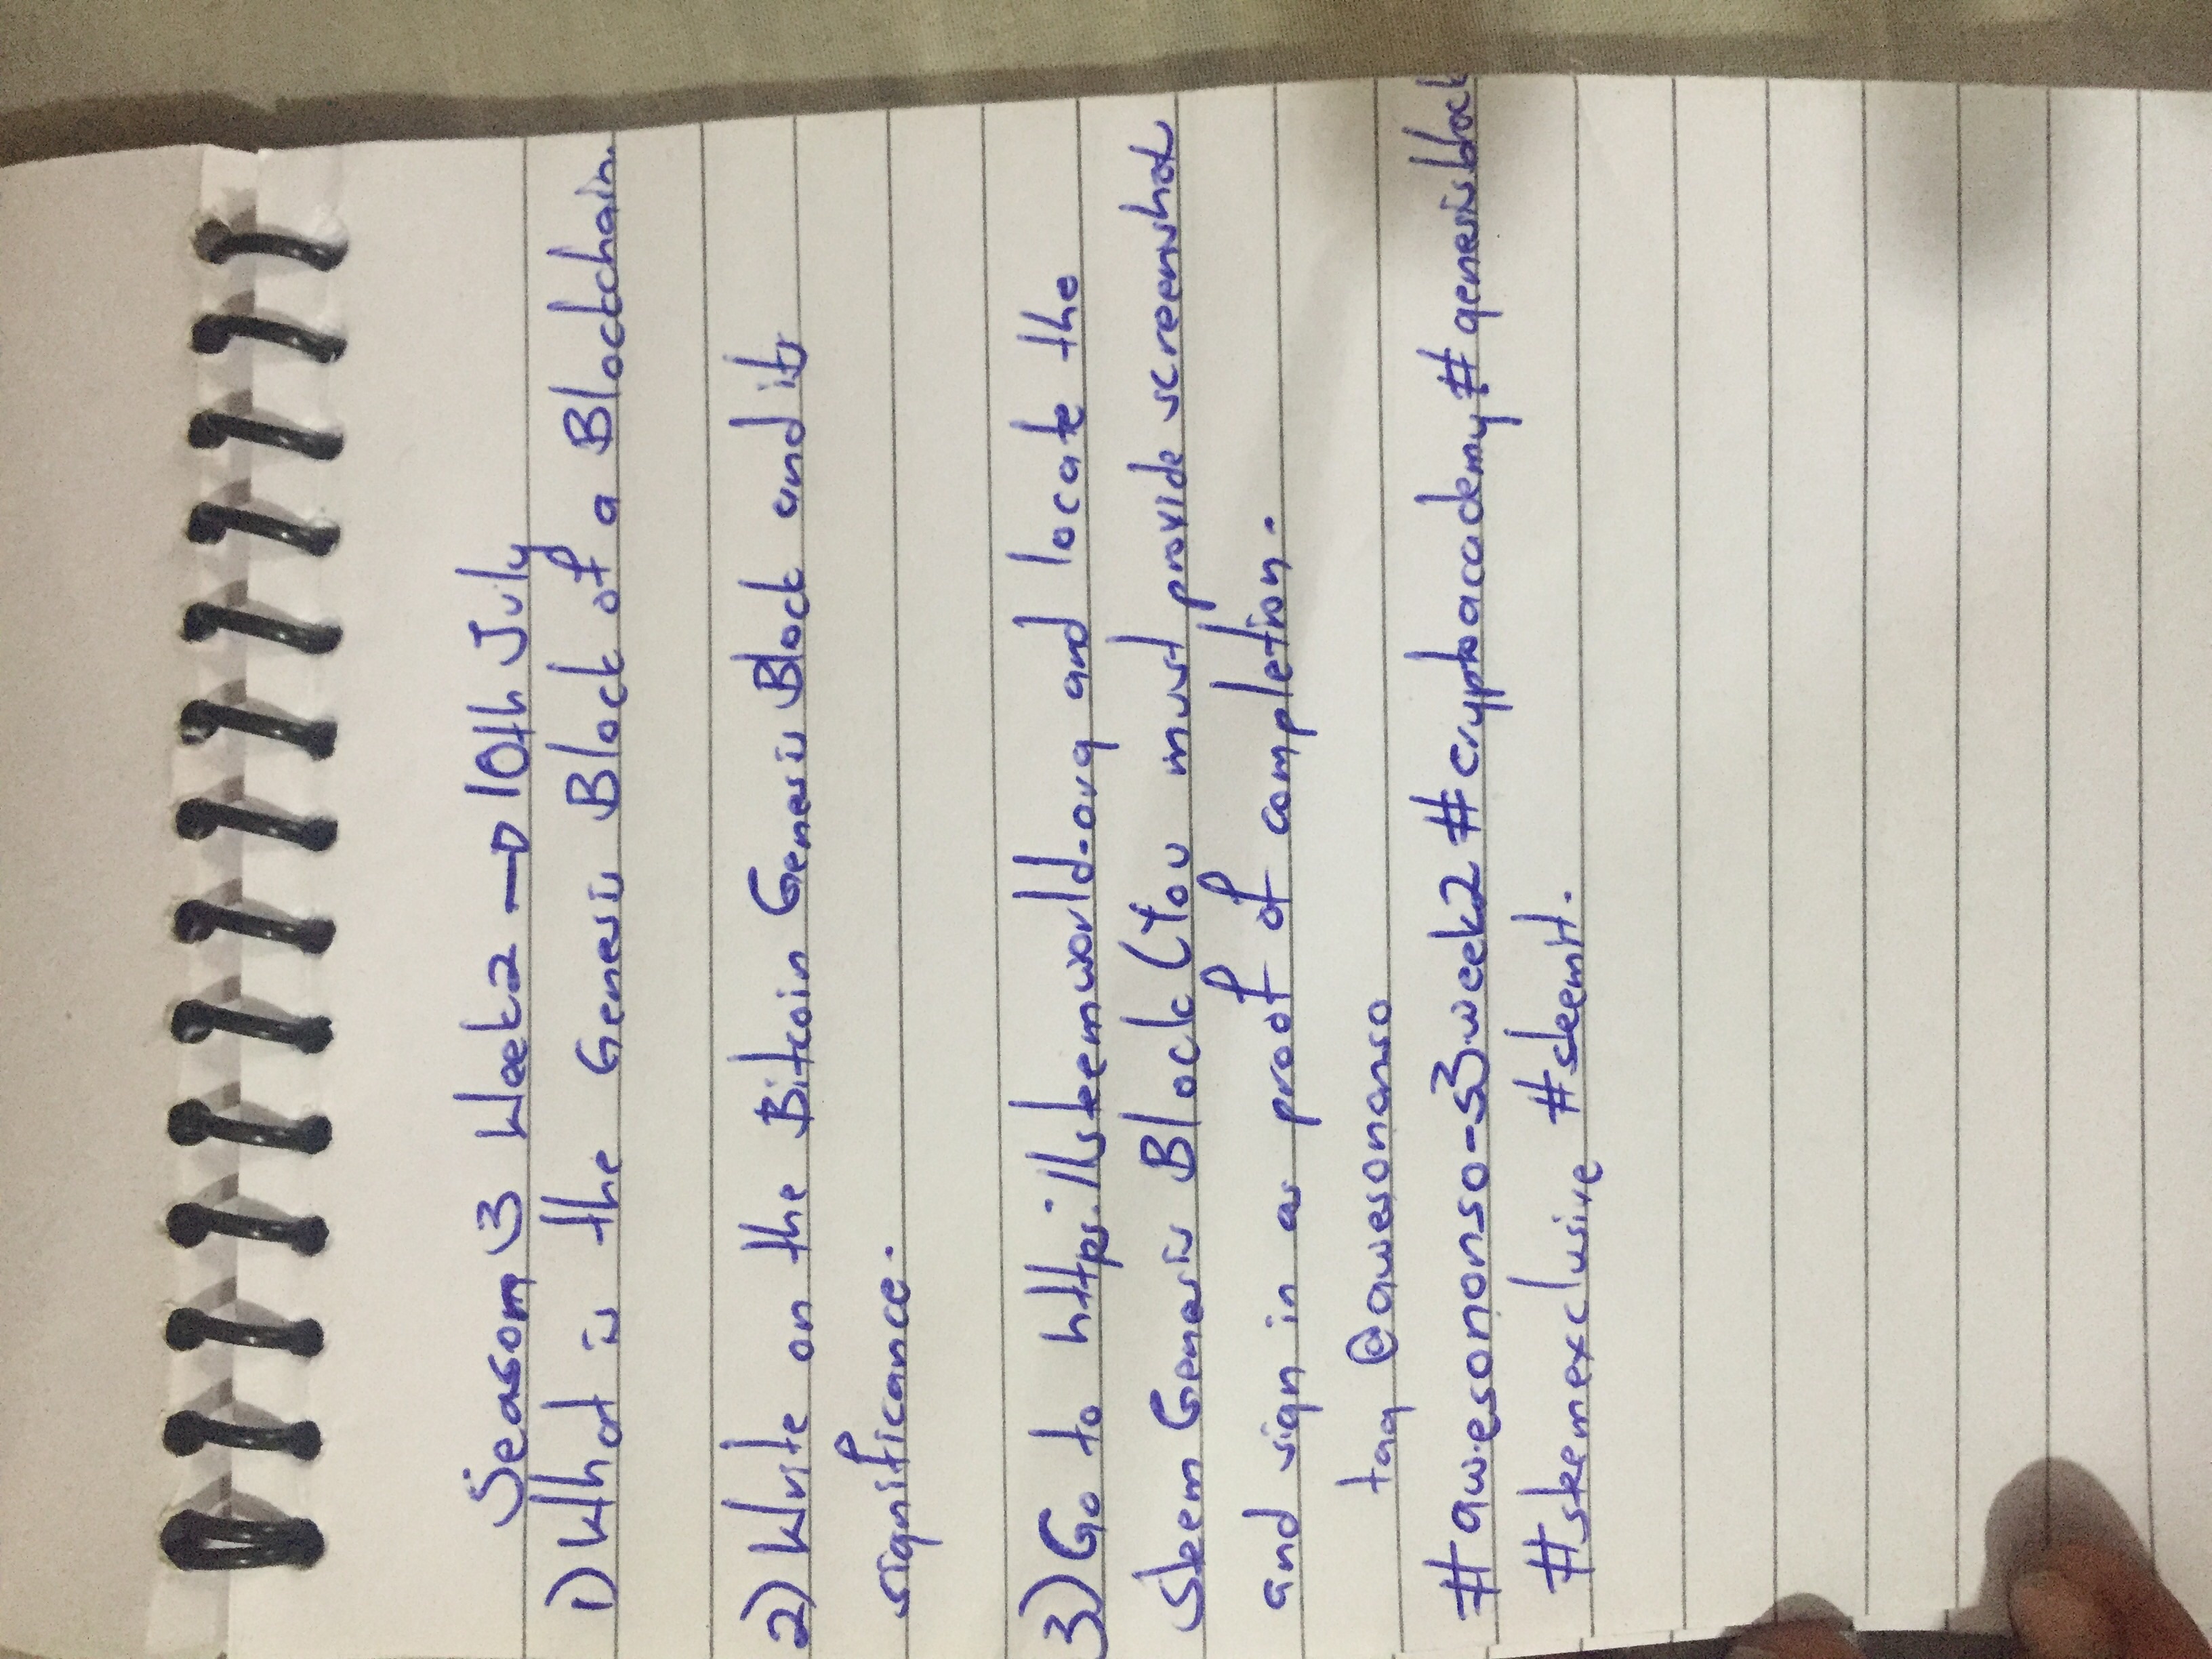 Season 3 Week2 → 10th July
1) What is the Genesis Block of a Blockchain.
2) Write on the Bitcoin Genesis Block and its
significance.
3) Go to https://steemworld.org and locate the
Steem Genesis Block (You must provide screenshot
and sign in as proof of completion.
tag @awesononso
#awesononso-s3week2 #cryptoacademy #genesisblock
#steemexclusive #steemit.